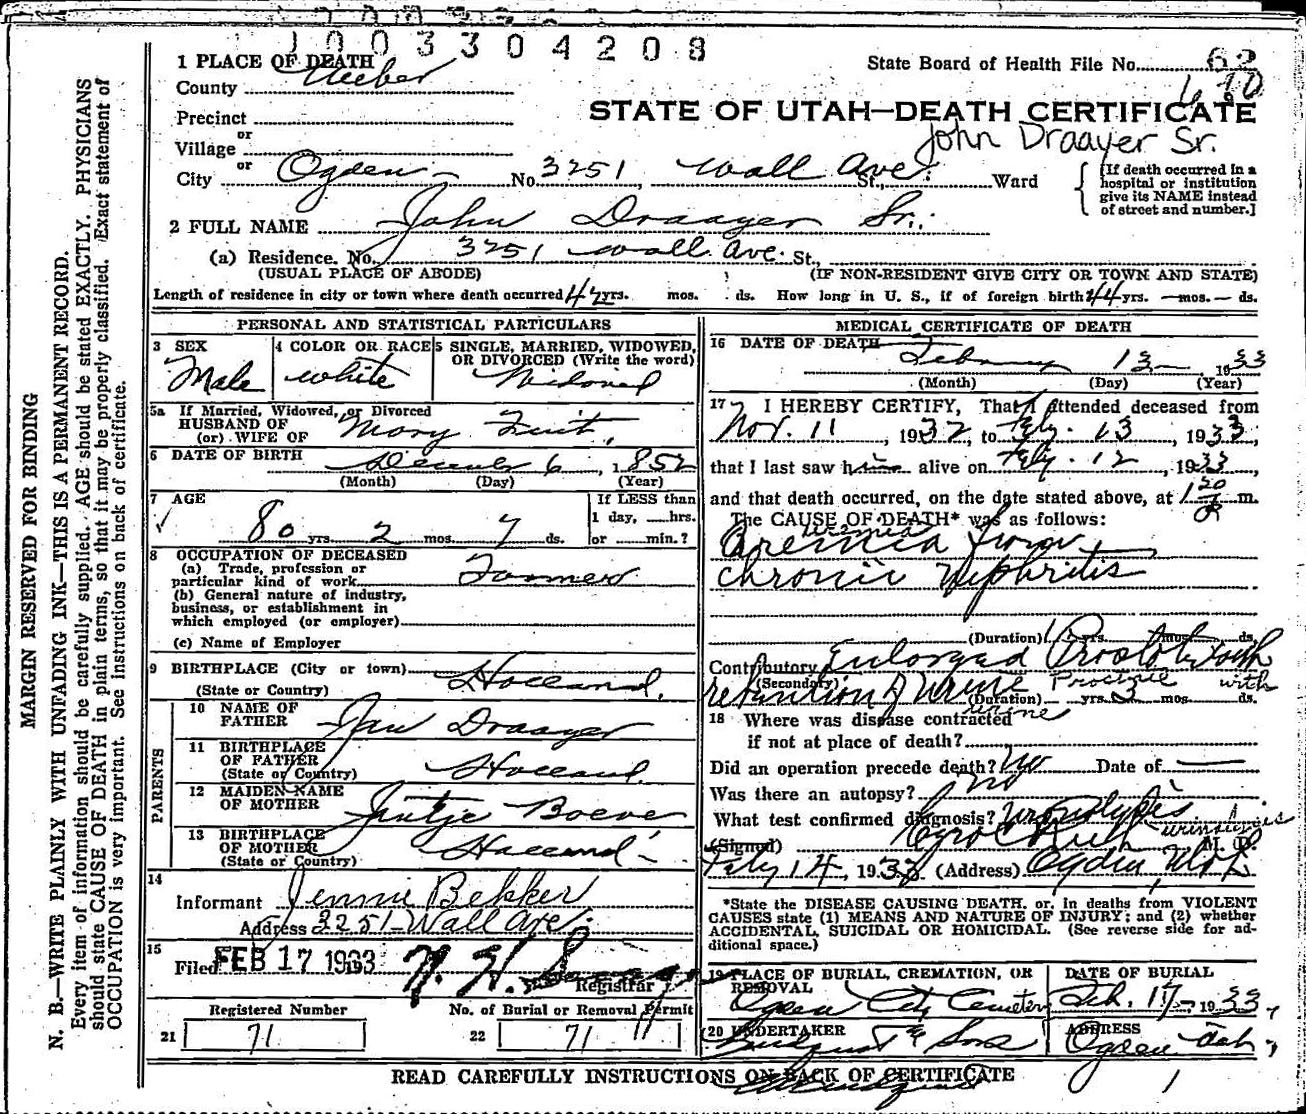 1003304208
1 PLACE OF DEATH
State Board of Health File No. 62
County Weber
670
STATE OF UTAH—DEATH CERTIFICATE
Precinct
or
John Draayer Sr.
Village
or
City Ogden— No. 3251, Wall Ave. St., Ward
[If death occurred in a hospital or institution give its NAME instead of street and number.]
2 FULL NAME John Draayer Sr.
(a) Residence. No. 3251 Wall Ave. St.,
(USUAL PLACE OF ABODE) (IF NON-RESIDENT GIVE CITY OR TOWN AND STATE)
Length of residence in city or town where death occurred 42 yrs. mos. ds. How long in U. S., if of foreign birth 44 yrs. — mos. — ds.
PERSONAL AND STATISTICAL PARTICULARS
3 SEX
Male
4 COLOR OR RACE
White
5 SINGLE, MARRIED, WIDOWED, OR DIVORCED (Write the word)
Widowed
5a If Married, Widowed, or Divorced
HUSBAND OF
(or) WIFE OF Mary
6 DATE OF BIRTH December 6, 1852
(Month) (Day) (Year)
7 AGE
80 yrs. 2 mos. 7 ds.
If LESS than
1 day, ___hrs.
or ___min.?
8 OCCUPATION OF DECEASED
(a) Trade, profession or
particular kind of work Farmer
(b) General nature of industry,
business, or establishment in
which employed (or employer)
(c) Name of Employer
9 BIRTHPLACE (City or town) Holland.
(State or Country)
PARENTS
10 NAME OF
FATHER Jan Draayer
11 BIRTHPLACE
OF FATHER Holland.
(State or Country)
12 MAIDEN NAME
OF MOTHER Jantje Boeve
13 BIRTHPLACE
OF MOTHER Holland—
(State or Country)
14
Informant Jennie Bekker
Address 3251 Wall Ave.
15
Filed FEB 17 1933 N. H.
Registrar
Registered Number
21 71
No. of Burial or Removal Permit
22 71
MEDICAL CERTIFICATE OF DEATH
16 DATE OF DEATH
February 13 1933
(Month) (Day) (Year)
17 I HEREBY CERTIFY, That I attended deceased from
Nov. 11, 1932, to Feby. 13, 1933,
that I last saw him alive on Feby. 12, 1933,
and that death occurred, on the date stated above, at 1 20 P m.
The CAUSE OF DEATH* was as follows:
uremia
Uremia from
Chronic Nephritis
(Duration) yrs. mos. ds.
Contributory Enlarged Prostate with
(Secondary) Prostate with
retention of Urine (Duration) yrs. 3 mos. ds.
urine
18 Where was disease contracted
if not at place of death?
Did an operation precede death? No Date of —
Was there an autopsy? No
What test confirmed diagnosis? Urinalysis
urinalysis
(Signed) M. D.
Feby 14, 1933 (Address) Ogden, Utah
*State the DISEASE CAUSING DEATH, or, in deaths from VIOLENT
CAUSES state (1) MEANS AND NATURE OF INJURY; and (2) whether
ACCIDENTAL, SUICIDAL OR HOMICIDAL. (See reverse side for ad-
ditional space.)
19 PLACE OF BURIAL, CREMATION, OR
REMOVAL
Ogden City Cemetery
DATE OF BURIAL
Feb. 17, 1933,
20 UNDERTAKER
Lindquist & Sons
ADDRESS
Ogden Utah
READ CAREFULLY INSTRUCTIONS ON BACK OF CERTIFICATE
MARGIN RESERVED FOR BINDING
N. B.—WRITE PLAINLY WITH UNFADING INK—THIS IS A PERMANENT RECORD.
Every item of information should be carefully supplied. AGE should be stated EXACTLY. PHYSICIANS
should state CAUSE OF DEATH in plain terms, so that it may be properly classified. Exact statement of
OCCUPATION is very important. See instructions on back of certificate.